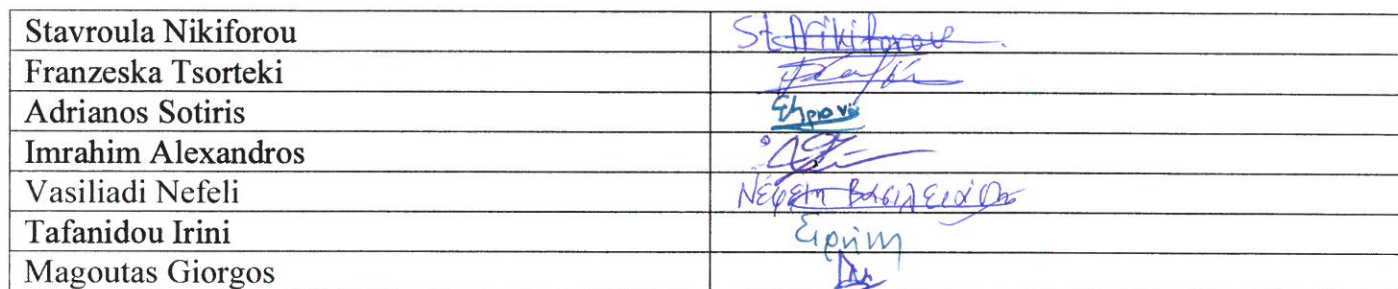 Stavroula Nikiforou St. Nikiforou
Franzeska Tsorteki
Adrianos Sotiris
Imrahim Alexandros
Vasiliadi Nefeli Νέφελη Βασιλειάδου
Tafanidou Irini Ειρήνη
Magoutas Giorgos